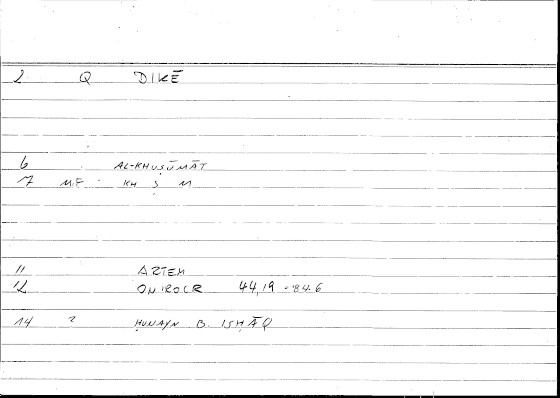 2 Q DIKĒ
6 AL-KHUṢŪMĀT
7 MF KH Ṣ M
11 ARTEM
12 ONIROCR 44,19 = 84.6
14 ? ḤUNAYN B. ISḤĀQ